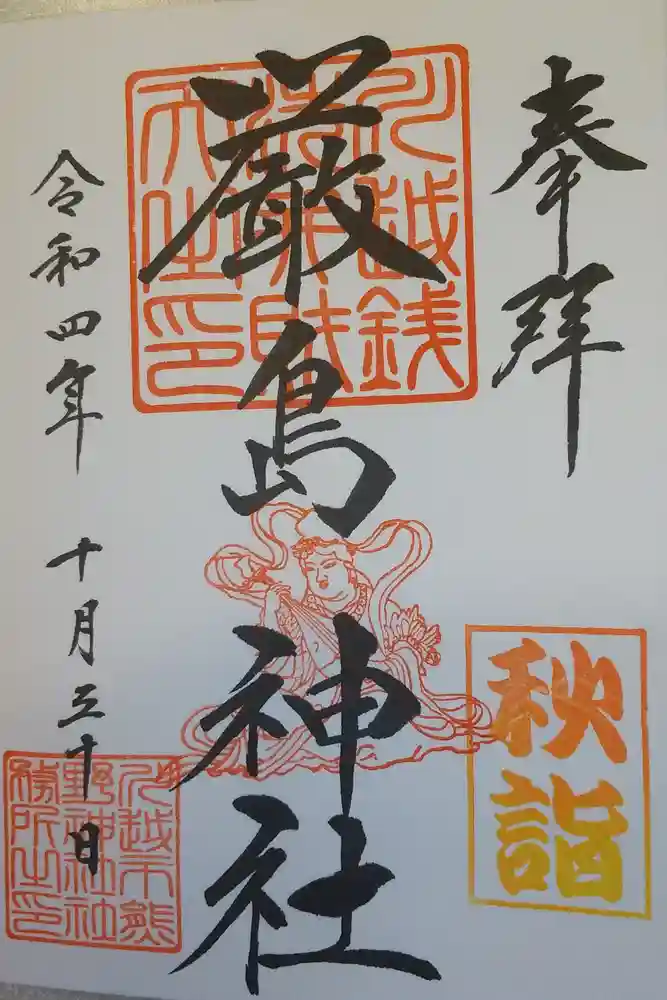 奉拝
厳島神社
令和四年 十月三十日
秋詣
川越銭
洗弁財
天之印
川越下熊
野神社社
務所之印